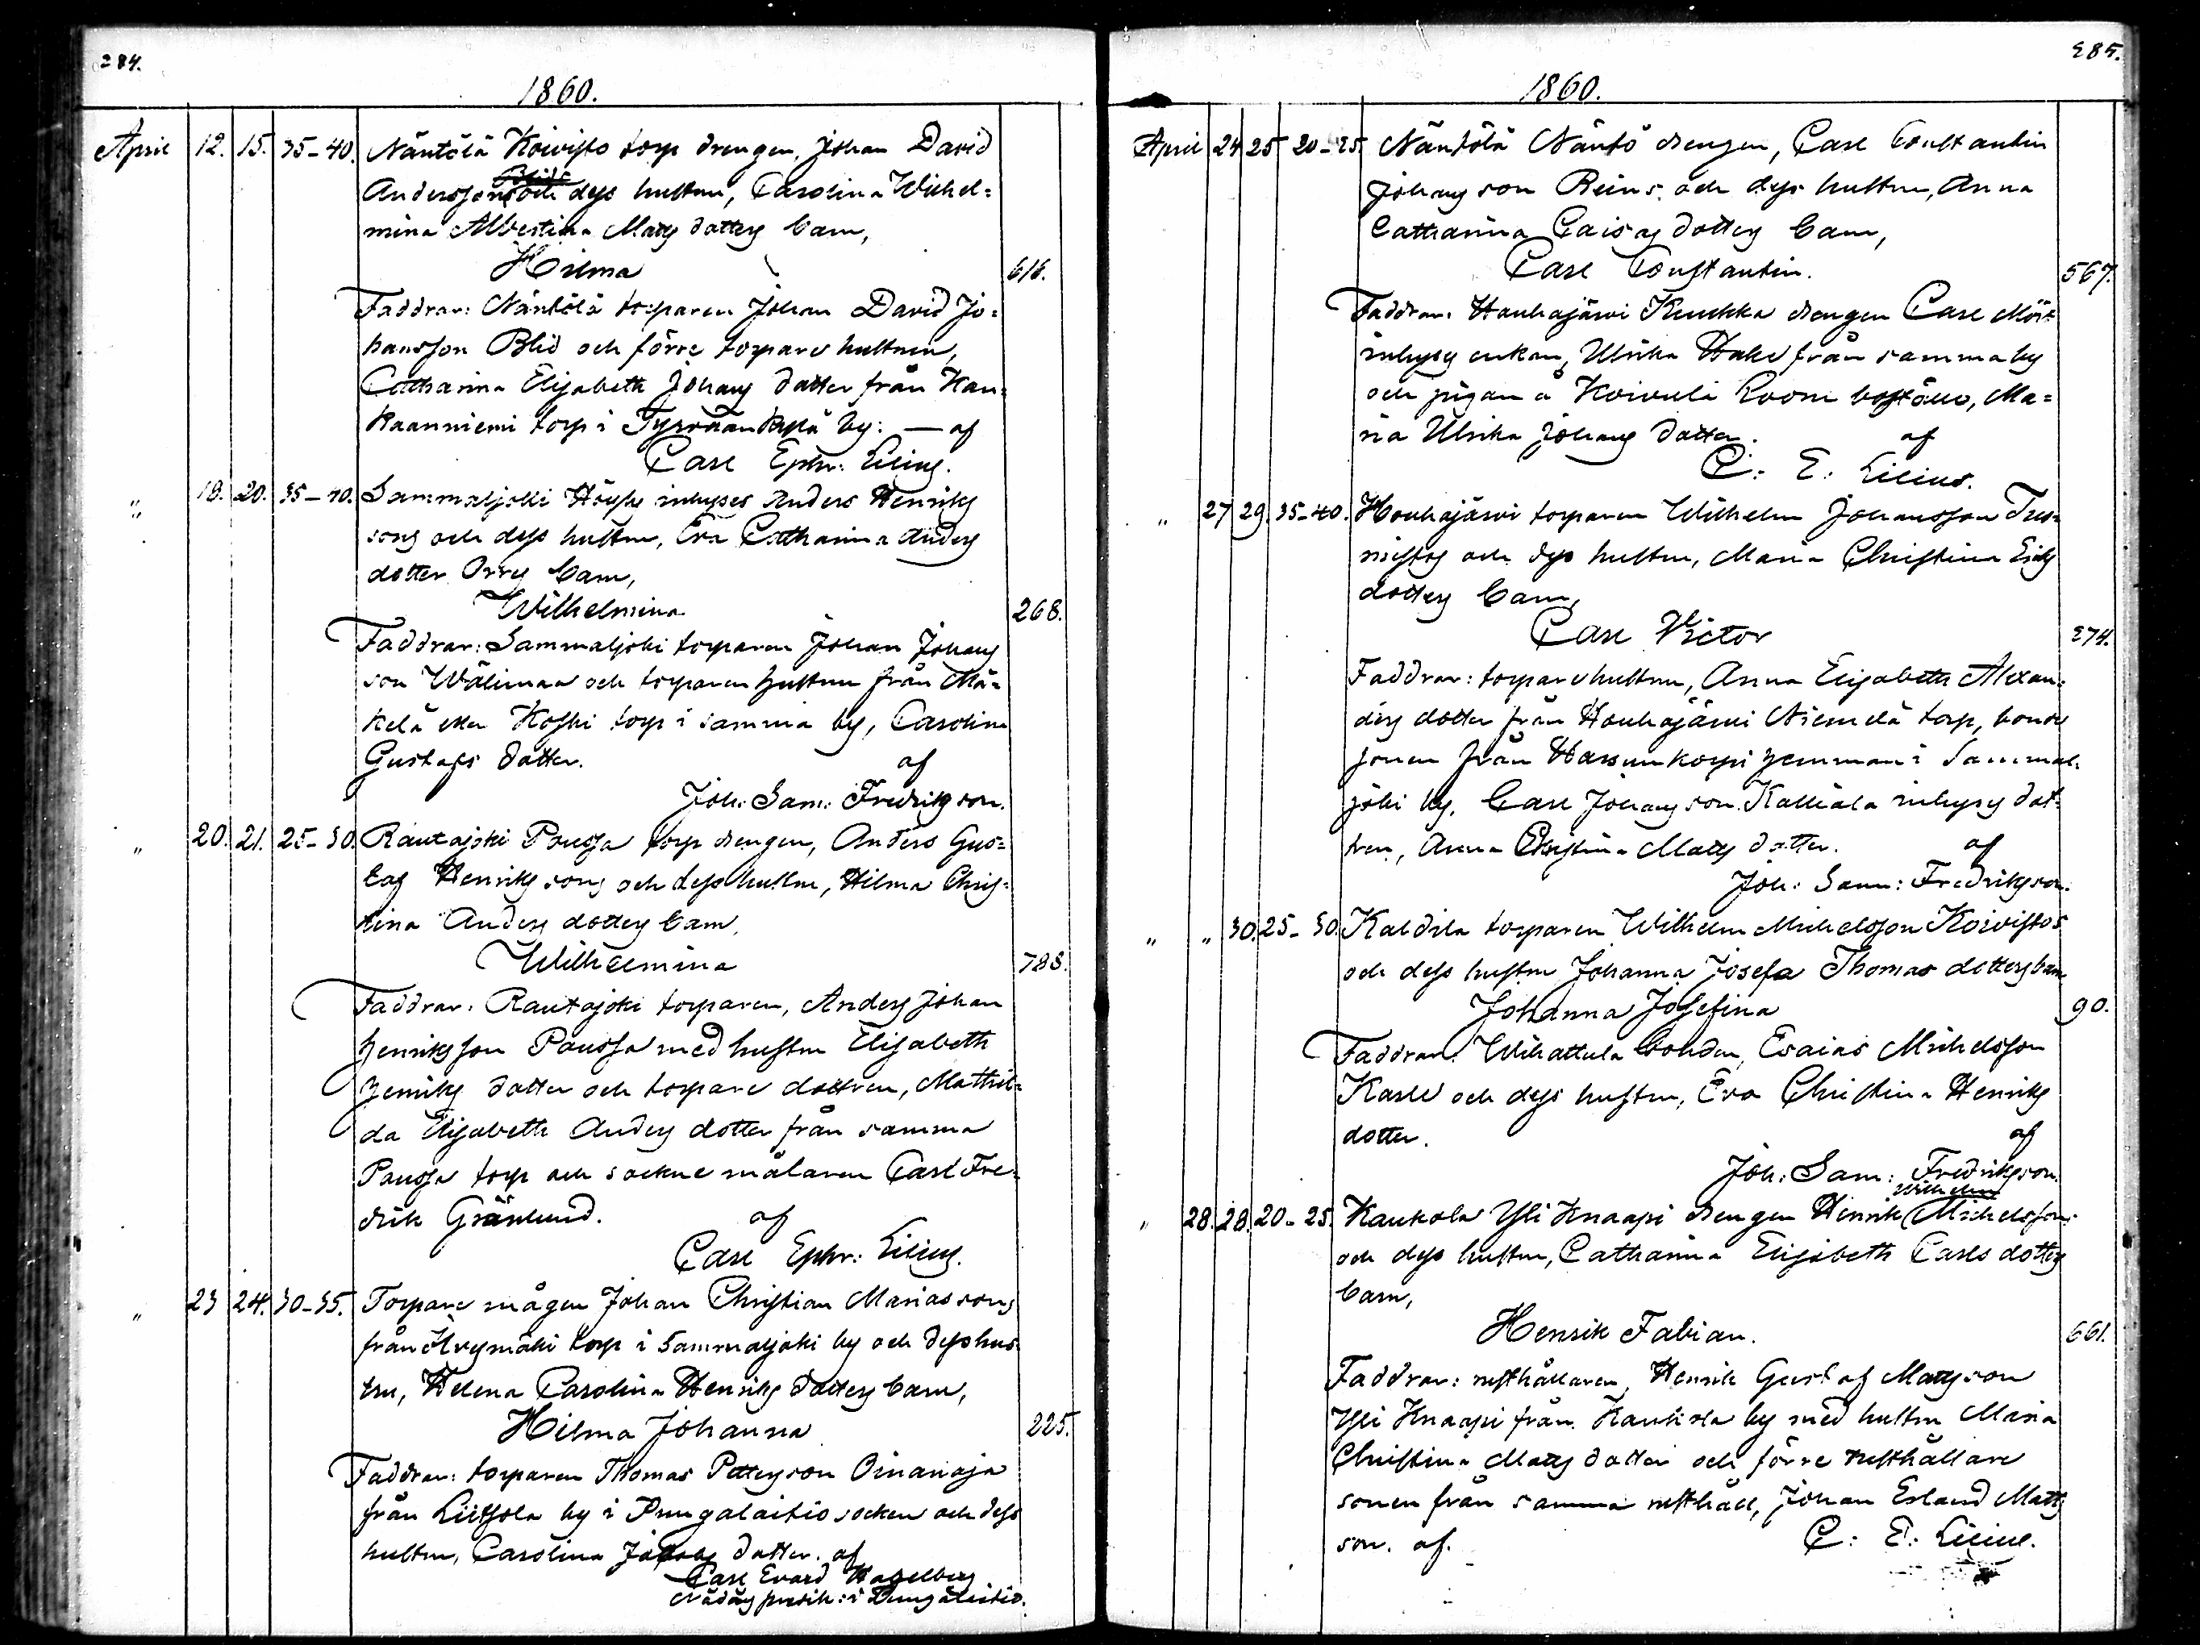 284.
1860.
April 12. 15. 35-40. Näntölä Koivisto torp drengen, Johan David
Anderssons och dess hustru, Carolina Wilhel=
mina Albertina Matts dotters barn,
Hilma 616.
Faddrar: Näntölä torparen Johan David Jo=
hansson Blid och förre torpare hustrun,
Catharina Elisabeth Johans dotter från Kan=
kaanniemi torp i Tyrvään kylä by: — af
Carl Ephr: Lilius.
" 19. 20. 35-40. Sammaljoki inhyses Anders Henriks
sons och dess hustru, Eva Catharina Anders
dotter Orrs barn,
Wilhelmina 268.
Faddrar: Sammaljoki torparen Johan Johans
son Wälimaa och torparen hustrun från Mä=
kelä eller Koski torp i samma by, Carolina
Gustafs dotter. af
Joh: Sam: Fredriksson.
" 20. 21. 25-30. Rautajoki Poussa torp drengen, Anders Gus=
taf Henriks sons och dess hustru, Hilma Chris=
tina Anders dotters barn,
Wilhelmina 788.
Faddrar: Rautajoki torparen, Anders Johan
Henriksson Poussa med hustru Elisabeth
Henriks dotter och torpare dottren, Mathil=
da Elisabeth Anders dotter från samma
Poussa torp och sockne målaren Carl Fre=
drik Grönlund. af
Carl Ephr: Lilius.
" 23 24. 30-35. Torpare mågen Johan Christian Mariassons
från torp i Sammaljoki by och dess hus=
tru, Helena Carolina Henriks dotters barn,
Hilma Johanna 225.
Faddrar: torparen Thomas Petters son Oinanoja
från Liitsola by i Pungalaitio socken och dess
hustru, Carolina Jakobs dotter. af
Carl Evard Hagelberg
Nådårs predik: i Pungalaitio.
285.
1860.
April 24 25 20-25 Näntölä Näntö drengen, Carl Constantin
Johans son Reins och dess hustru, Anna
Catharina Caisas dotters barn,
Carl Constantin. 567.
Faddrar: Houhajärvi drengen Carl
inhyses enkan, Ulrika från samma by
och pigan å Koivula boställe, Ma=
ria Ulrika Johans dotter. af
C: E: Lilius.
" 27 29. 35-40. Houhajärvi torparen Wilhelm Johansson
och dess hustru, Maria Christina Eriks
dotters barn,
Carl Victor 274.
Faddrar: torpare hustrun, Anna Elisabeth Alexan=
ders dotter från Houhajärvi Niemelä torp, bonde
sonen från Hassunkorpi hemman i Sammal=
joki by, Carl Johans son Kalliala inhyses dot=
tren, Anna Christina Matts dotter. af
Joh: Sam: Fredriksson.
" " 30. 25-30. Kaldila torparen Wilhelm Michelsson Koivistos
och dess hustru Johanna Josefa Thomas dotters barn
Johanna Josefina 90.
Faddrar: Wihattula bonden, Esaias Michelsson
Karle och dess hustru, Eva Christina Henriks
dotter. af
Joh: Sam: Fredriksson.
Wilhelm
" 28. 28. 20-25. Kaukola Yli Knaapi drengen Henrik Michelsson
och dess hustru, Catharina Elisabeth Carls dotters
barn,
Henrik Fabian. 661.
Faddrar: rusthållaren, Henrik Gustaf Matts son
Yli Knaapi från Kaukola by med hustru Maria
Christina Matts dotter och förre rusthållare
sonen från samma rusthåll, Johan Erland Matts
son. af. C: E: Lilius.